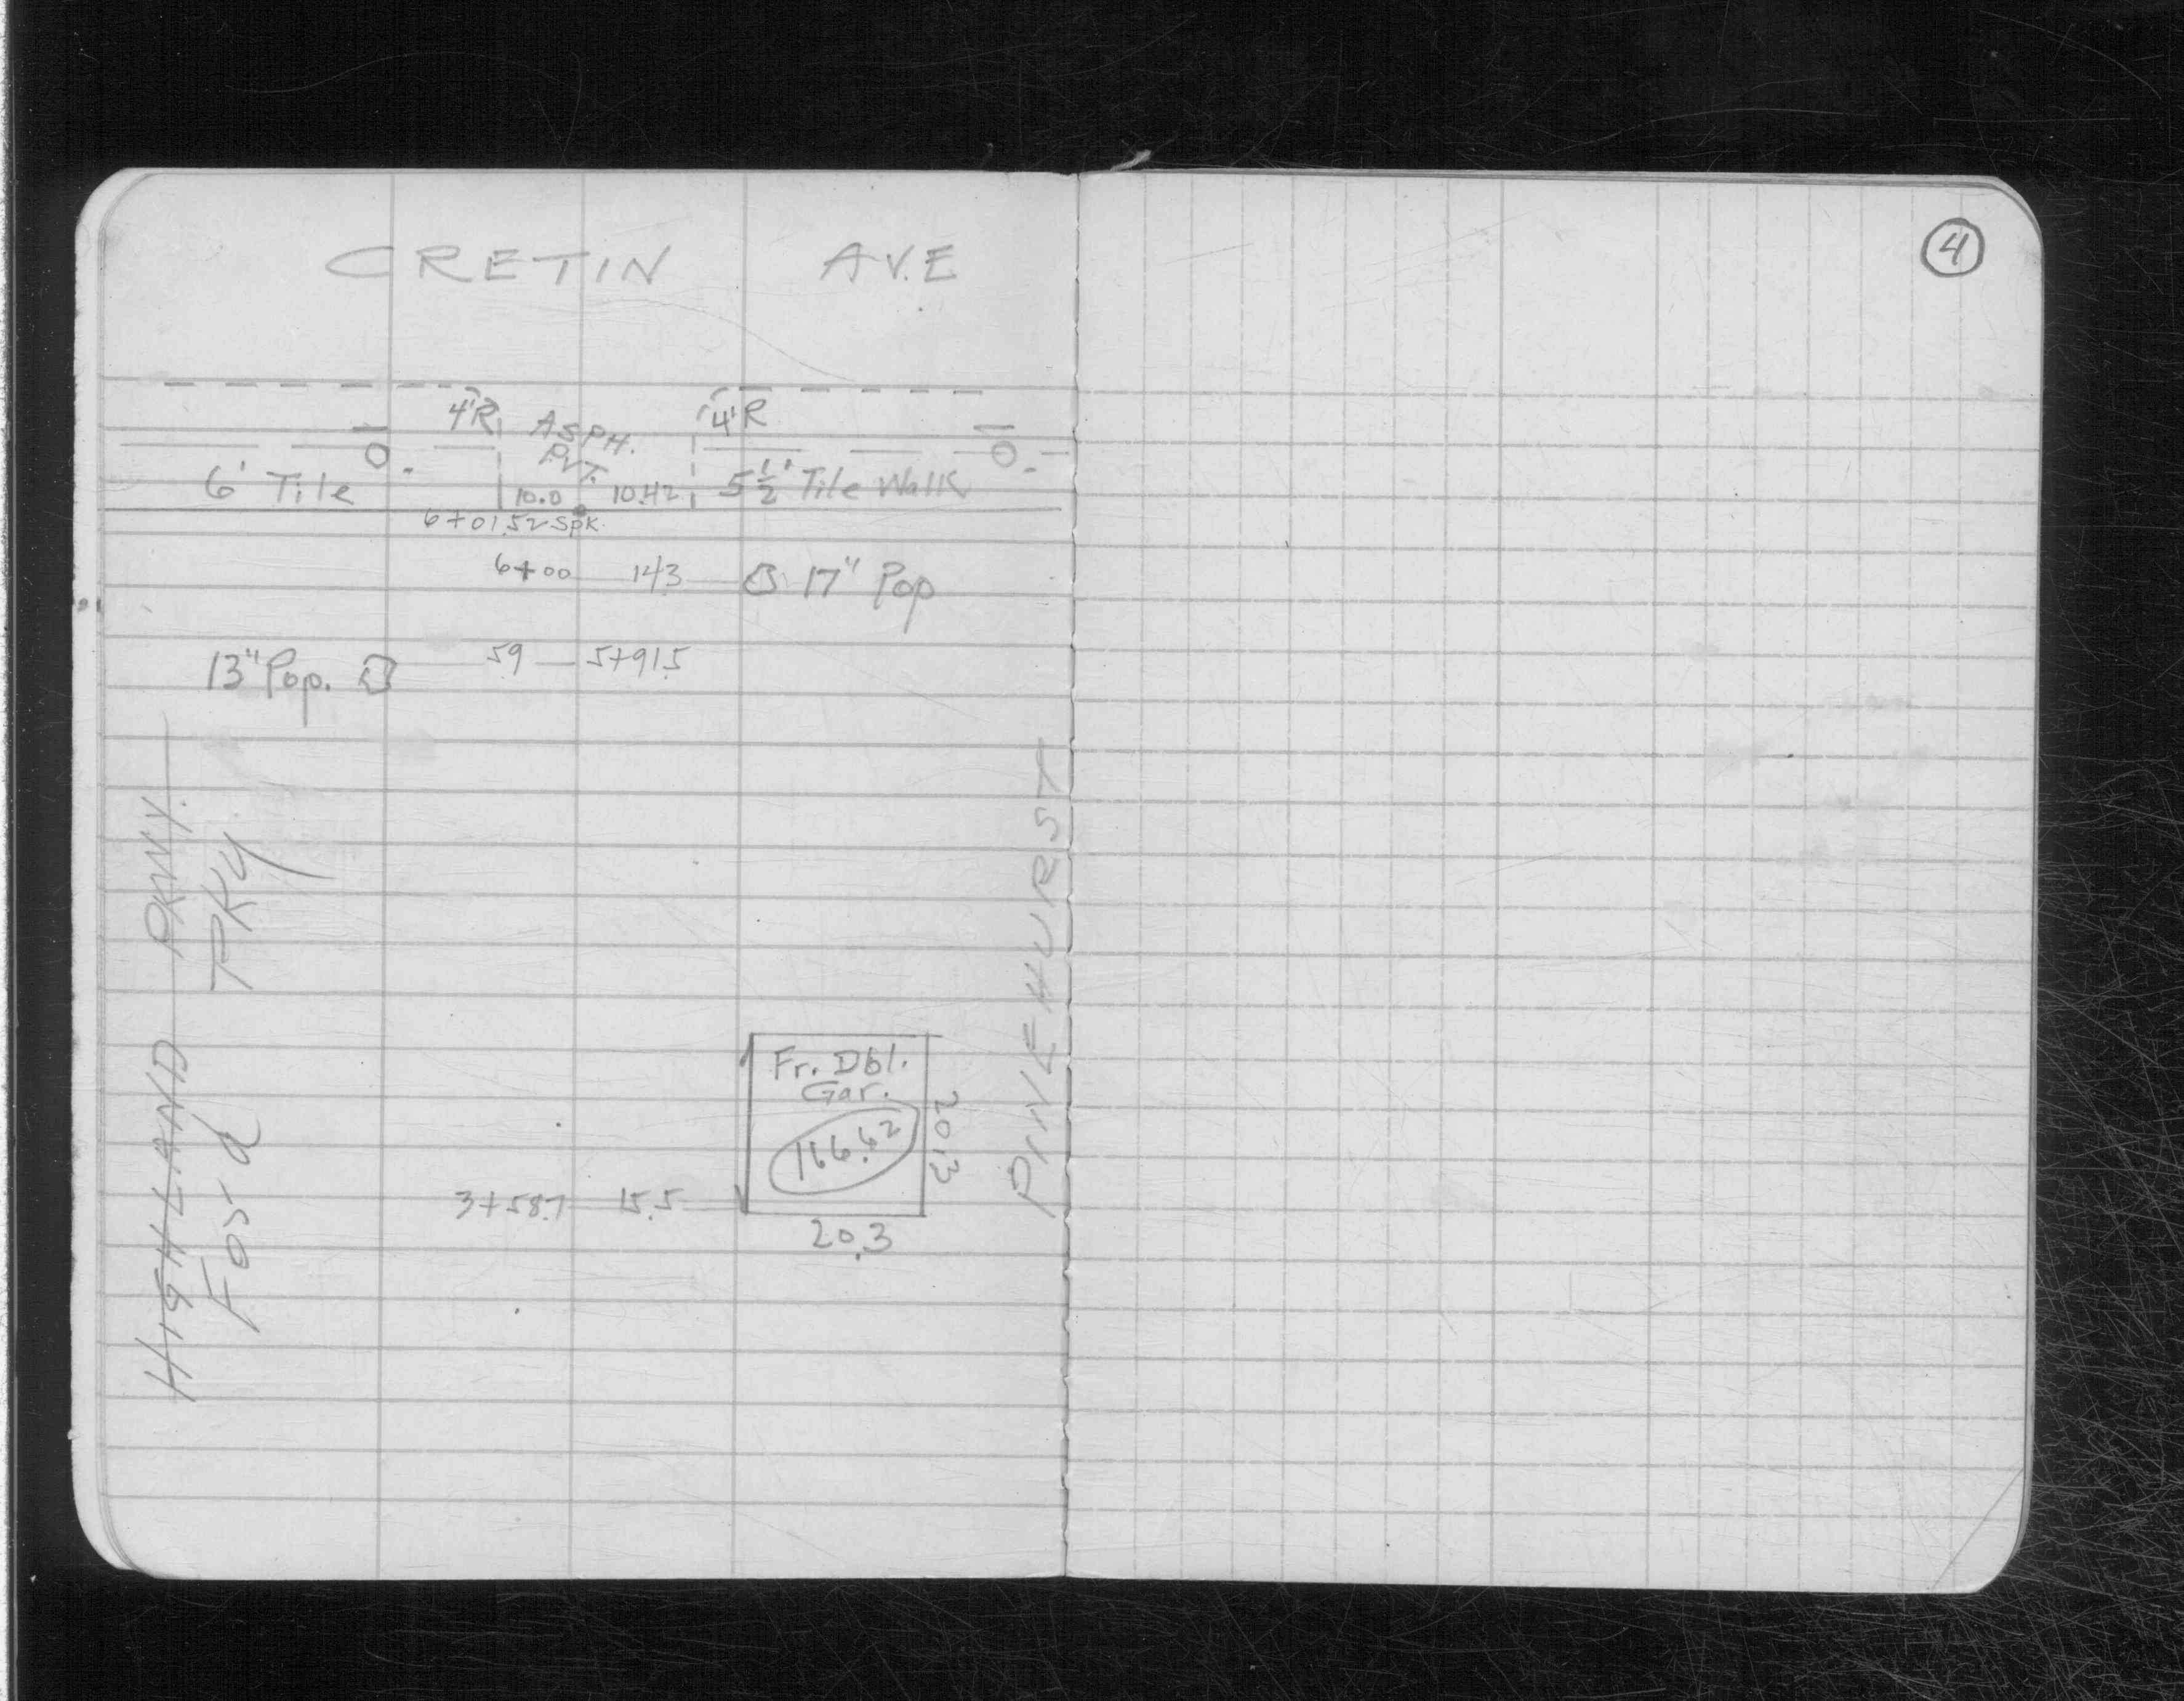 CRETIN AVE
4
4'R ASPH. 4'R
PVT.
6' Tile 10.0 10.42 5½' Tile Walk
6+01.52 Spk.
6+00 14.3 17" Pop
13" Pop. 59 5+91.5
HIGHLAND PKWY.
Ford PKY
PINEHURST
Fr. Dbl.
Gar.
166.62
20.3
3+58.7 15.5
20.3